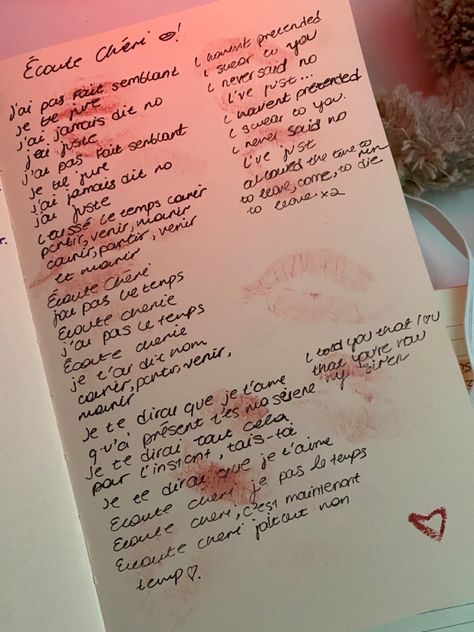 Écoute Chéri !
j'ai pas fait semblant
je te jure
j'ai jamais dit no
j'ai juste
j'ai pas fait semblant
je te jure
j'ai jamais dit no
j'ai juste
Laissé le temps courir
partir, venir, mourir
courir, partir, venir
et mourir
Écoute Chéri
j'ai pas le temps
Écoute cherie
j'ai pas le temps
Écoute cherie
je t'ai dit nom
courir, partir, venir,
mourir
Je te dirai que je t'aime
q'u'ai présent t'es ma sérene
je te dirai tout cela
pour l'instant, tais-toi
Je te dirai que je t'aime
Ecoute cheri je pas le temps
Ecoute cheri, c'est maintenant
Ecoute cheri
temp
I havent pretended
I swear to you
I never said no
I've just...
I havent pretended
I swear to you.
I never said no
I've just
allowed the time to run
to leave, come, to die
to leave x2
I told you that I
that you're now
my siren